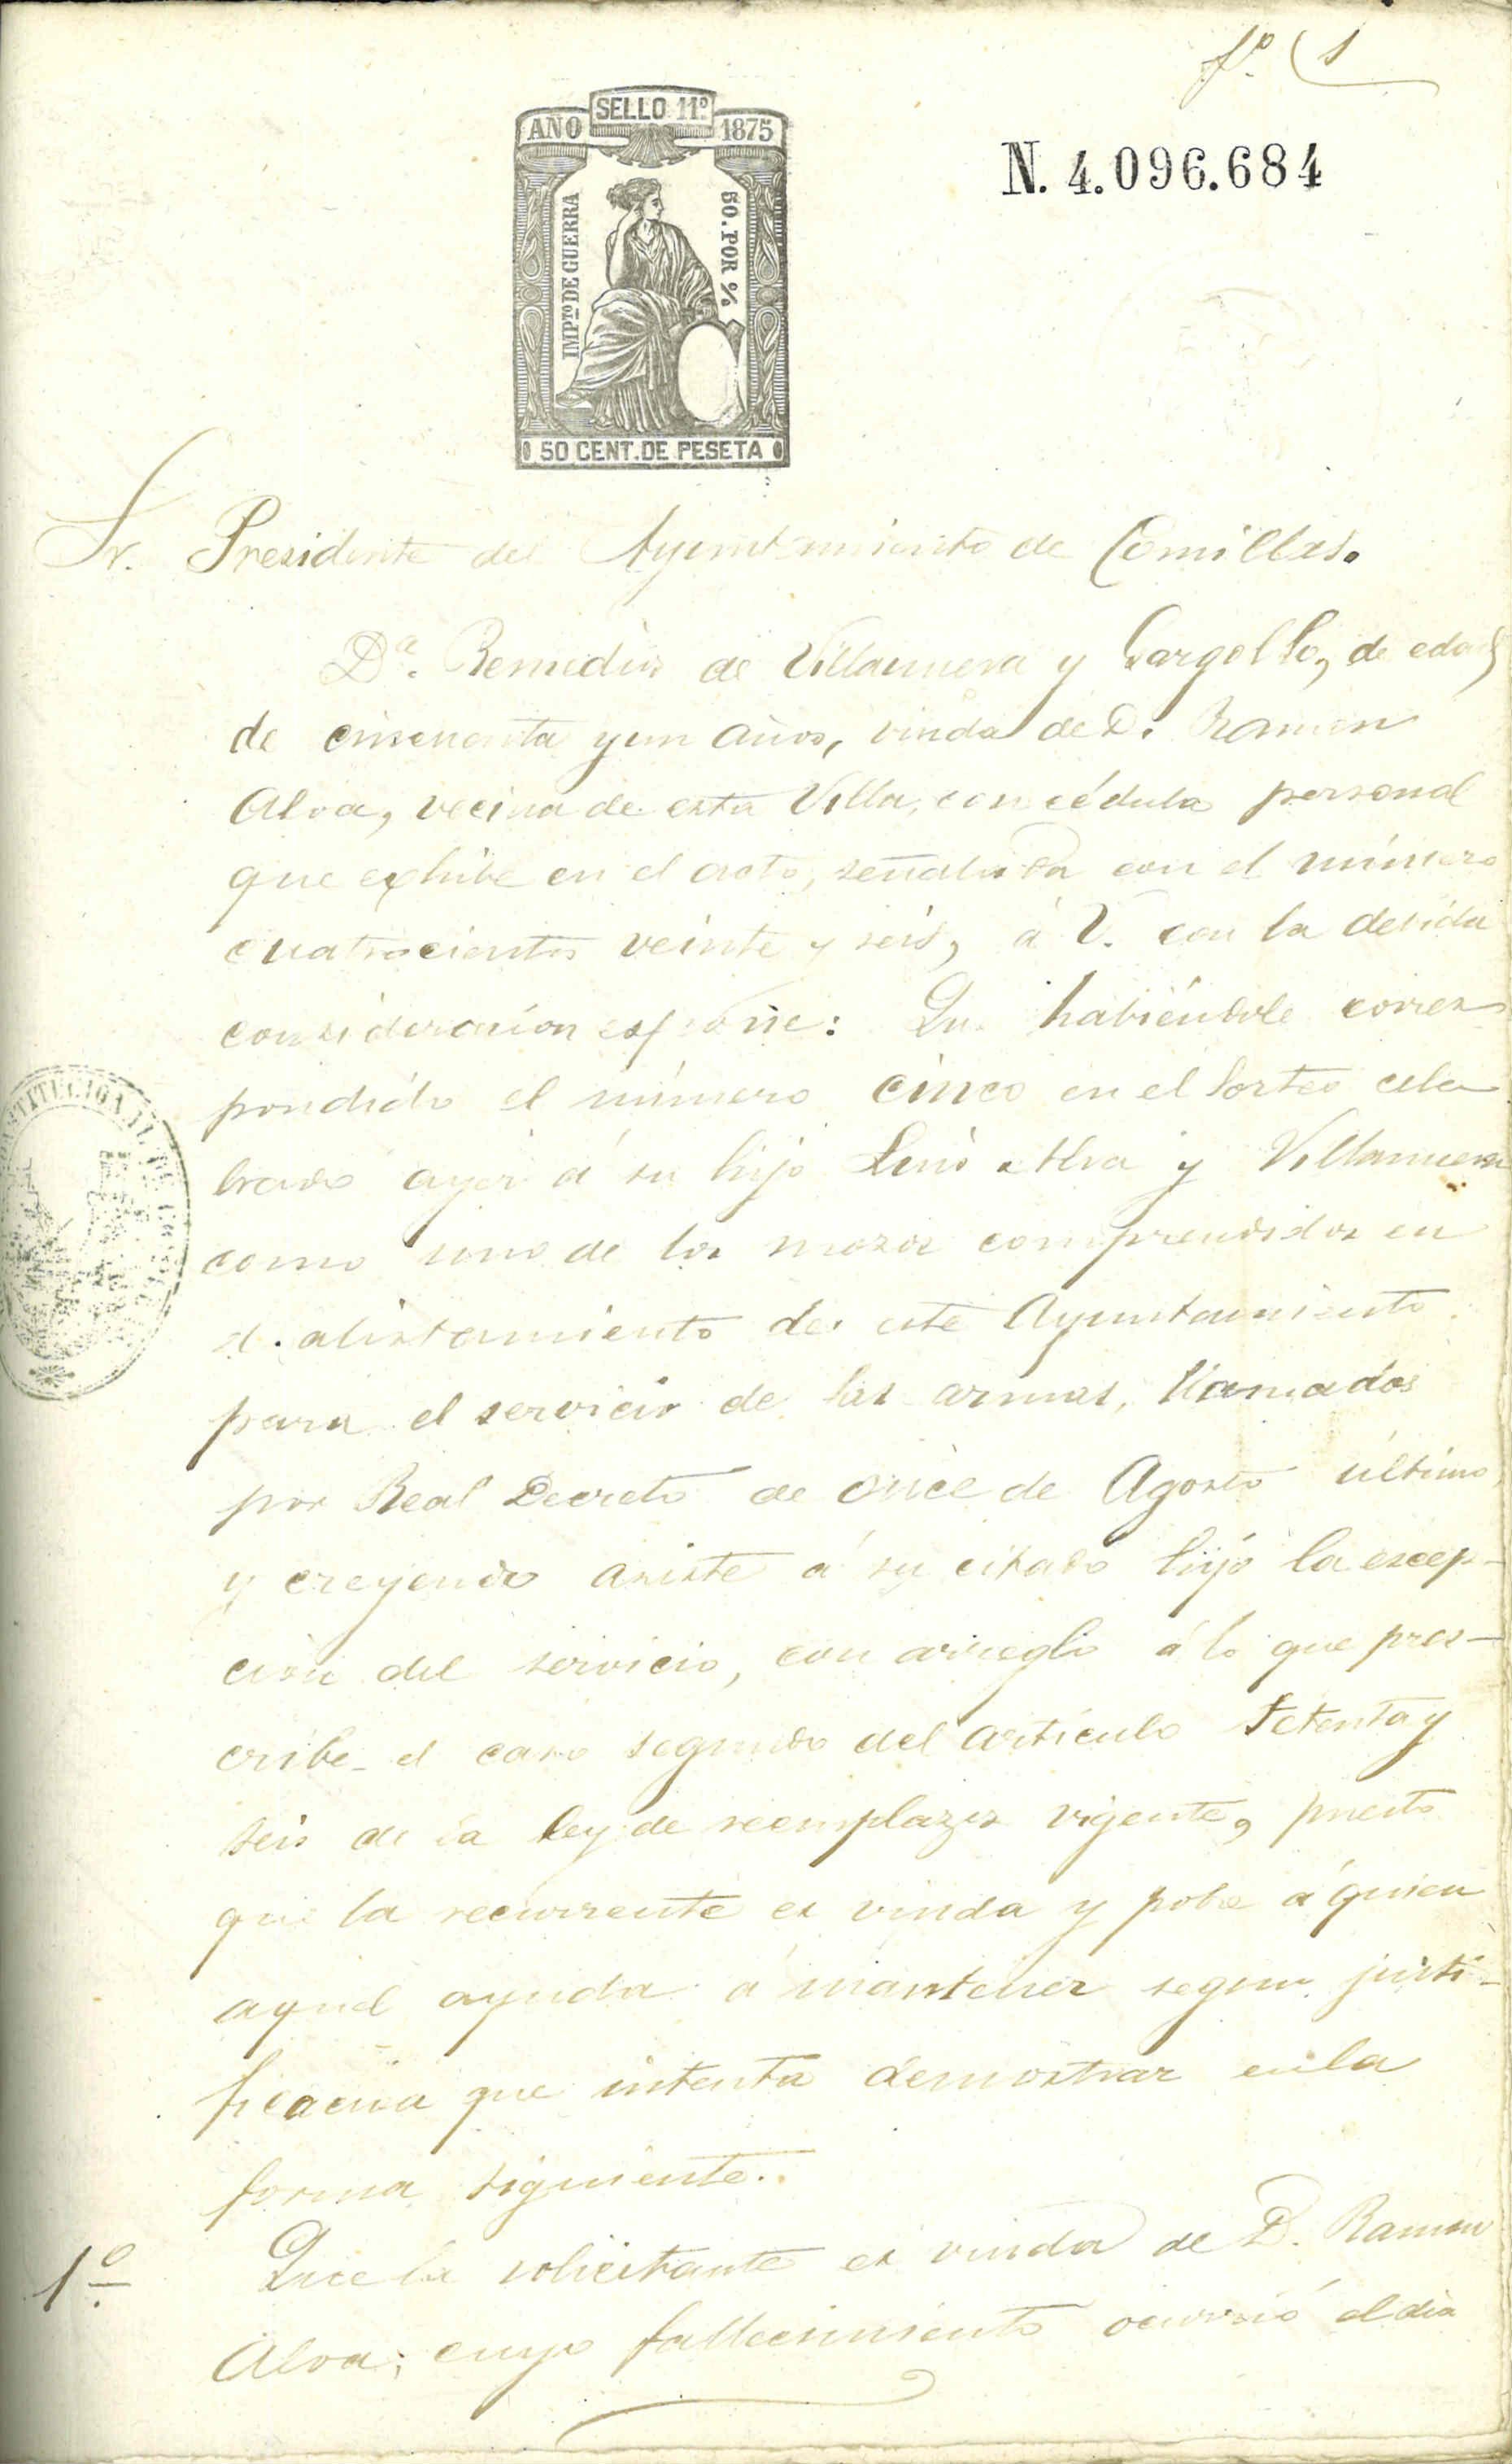 fº. 1
AÑO SELLO 11º 1875
IMPTO DE GUERRA
50. POR %
50 CENT. DE PESETA
N. 4.096.684
Sr. Presidente del Ayuntamiento de Comillas.
Dª. Remedios de Villanueva y Gargollo, de edad
de cincuenta y un años, viuda de D. Ramon
Alva, vecina de esta Villa, con cédula personal
que exhibe en el acto, señalada con el número
cuatrocientos veinte y seis, á V. con la debida
consideracion expone: Que habiéndole corres
pondido el número cinco en el Sorteo cele
brado ayer á su hijo Luis Alva y Villanueva
como uno de los mozos comprendidos en
el alistamiento de este Ayuntamiento
para el servicio de las armas, llamados
por Real Decreto de once de Agosto último,
y creyendo asiste á su citado hijo la escep-
ción del servicio, con arreglo á lo que pres-
cribe el caso segundo del artículo Setenta y
seis de la ley de reemplazos vigente, puesto
que la recurrente es viuda y pobre á quien
aquel ayuda á mantener segun justi-
ficacion que intenta demostrar en la
forma siguiente.
1º Que la solicitante es viuda de D. Ramon
Alva, cuyo fallecimiento ocurrió el dia
CONSTITUCIONAL DE